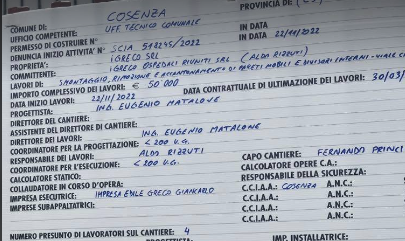 COMUNE DI: COSENZA PROVINCIA DI: (CS)
UFFICIO COMPETENTE: UFF. TECNICO COMUNALE
PERMESSO DI COSTRUIRE N° IN DATA
DENUNCIA INIZIO ATTIVITA' N° SCIA 598245/2022 IN DATA 22/11/2022
PROPRIETA': IGRECO SRL
COMMITTENTE: IGRECO OSPEDALI RIUNITI SRL (ALDO RIZZUTI)
LAVORI DI: SMONTAGGIO, RIMOZIONE E ACCANTONAMENTO DI PARETI MOBILI E DIVISORI INTERNI - VIALE
IMPORTO COMPLESSIVO DEI LAVORI: € 50 000
DATA INIZIO LAVORI: 22/11/2022 DATA CONTRATTUALE DI ULTIMAZIONE DEI LAVORI: 30/03/
PROGETTISTA: ING. EUGENIO MATALONE
DIRETTORE DEL CANTIERE:
ASSISTENTE DEL DIRETTORE DI CANTIERE:
DIRETTORE DEI LAVORI: ING. EUGENIO MATALONE
COORDINATORE PER LA PROGETTAZIONE: < 200 U.G.
RESPONSABILE DEI LAVORI: ALDO RIZZUTI CAPO CANTIERE: FERNANDO PRINCI
COORDINATORE PER L'ESECUZIONE: < 200 U.G. CALCOLATORE OPERE C.A.:
CALCOLATORE STATICO: RESPONSABILE DELLA SICUREZZA:
COLLAUDATORE IN CORSO D'OPERA: C.C.I.A.A.: COSENZA A.N.C.:
IMPRESA ESECUTRICE: IMPRESA EDILE GRECO GIANCARLO C.C.I.A.A.: A.N.C.:
IMPRESE SUBAPPALTATRICI: C.C.I.A.A.: A.N.C.:
C.C.I.A.A.: A.N.C.:
NUMERO PRESUNTO DI LAVORATORI SUL CANTIERE: 4
IMP. INSTALLATRICE: